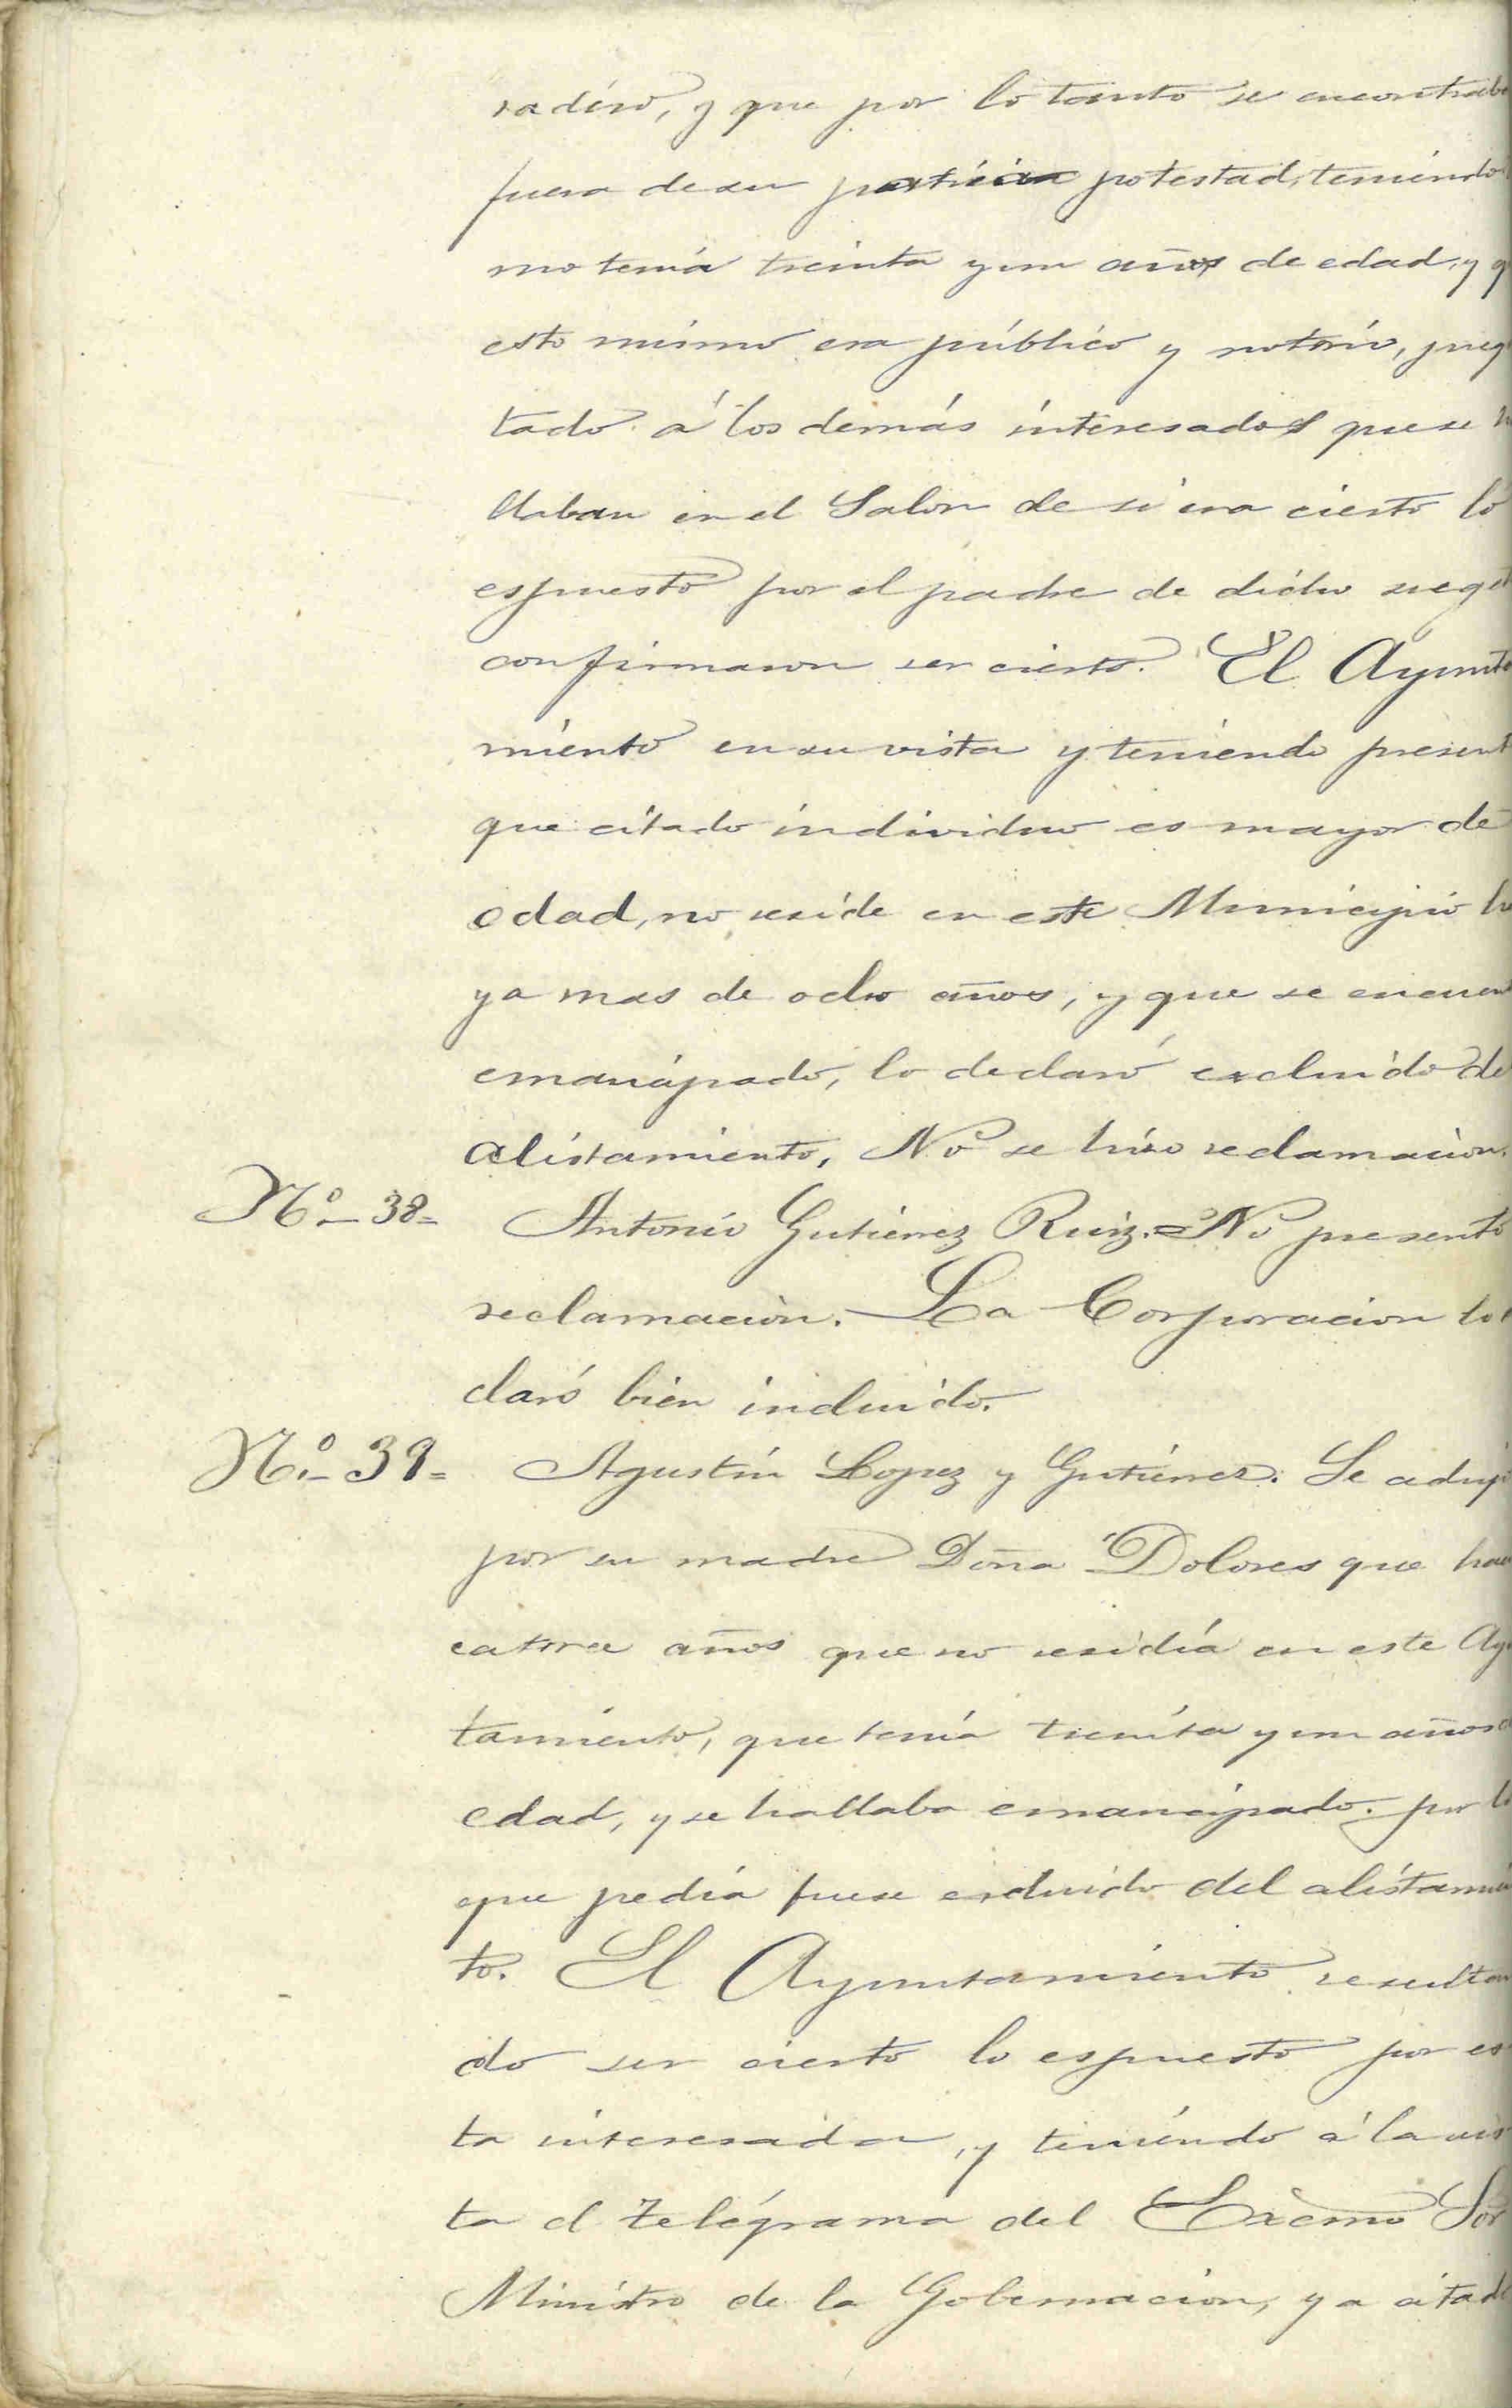 radero, y que por lo tanto se encontraba
fuera de su patria potestad, teniendo
mo tenía treinta y un años de edad, y q
esto mismo era público y notorio, preg
tado á los demás interesados que se h
llaban en el Salon de si era cierto lo
espuesto por el padre de dicho
confirmaron ser cierto. El Ayunta
miento en su vista y teniendo present
que citado individuo es mayor de
edad, no reside en este Municipio ha
ya mas de ocho años, y que se encuen
emancipado, lo declaró excluido de
alistamiento, No se hizo reclamacion.
Nº 38= Antonio Gutierrez Ruiz.= No presentó
reclamacion. La Corporacion lo
claró bien incluido.
Nº 39= Agustin Lopez y Gutierrez. Se adujo
por su madre Doña Dolores que hace
catorce años que no residía en este Ayu
tamiento, que tenía treinta y un años
edad, y se hallaba emancipado. por lo
que pedía fuese excluido del alistamien
to. El Ayuntamiento resultan
do ser cierto lo espuesto por es
ta interesada, y teniendo á la vis
ta el telégrama del Excmo Sor
Ministro de la Gobernacion, ya citado